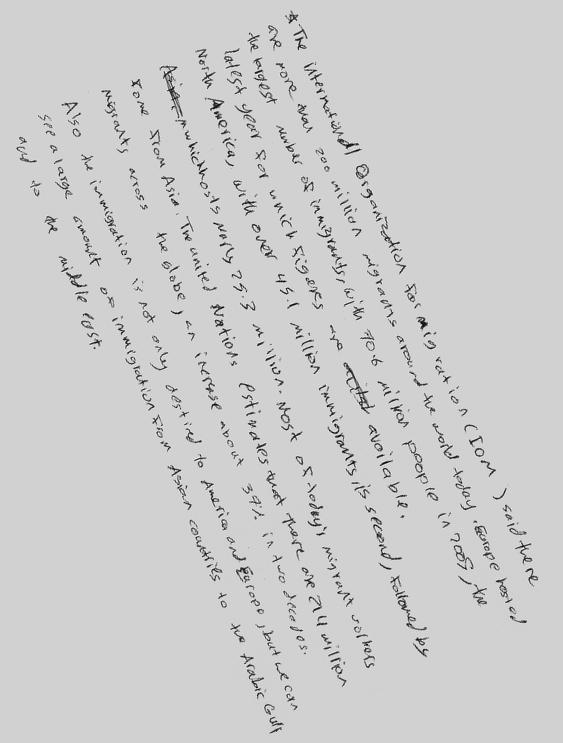 * The international Organization for migration (IOM) said there
are more than 200 million migrants around the world today. Europe hosted
the largest number of immigrants, with 70.6 million people in 2005, the
latest year for which figures are available.
North America, with over 45.1 million immigrants, is second, followed by
Asia which hosts nearly 25.3 million. Most of today's migrant workers
come from Asia. The united Nations estimates that there are 214 million
migrants across the globe, an increase about 37% in two decades.
Also the immigration is not only destined to America and Europe, but we can
see a large amount of immigration from Asian countries to the Arabic Gulf
and to the middle east.